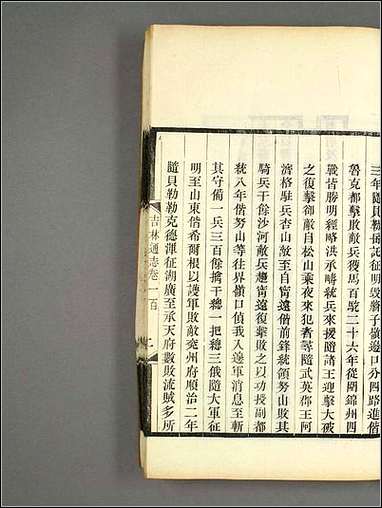 三年隨貝勒岳託征明毀牆子嶺邊口分四路進偕
魯克都擊敗敵兵獲馬百駝二十六年從圍錦州四
戰皆勝明經略洪承疇統兵來援隨諸王迎擊大破
之復擊卻敵自松山乘夜來犯者尋隨武英郡王阿
濟格駐兵杏山敵至自甯遠偕前鋒統領努山敗其
騎兵于餘沙河敵兵趨甯遠復率敗之以功授副都
統八年偕努山等往界嶺口値我入邊軍消息至斬
其守備一兵三百餘擒千總一把總三俄隨大軍征
明至山東偕希爾根以護軍敗敵兗州府順治二年
隨貝勒勒克德渾征湖廣至承天府數敗流賊多所
吉林通志卷一百
二